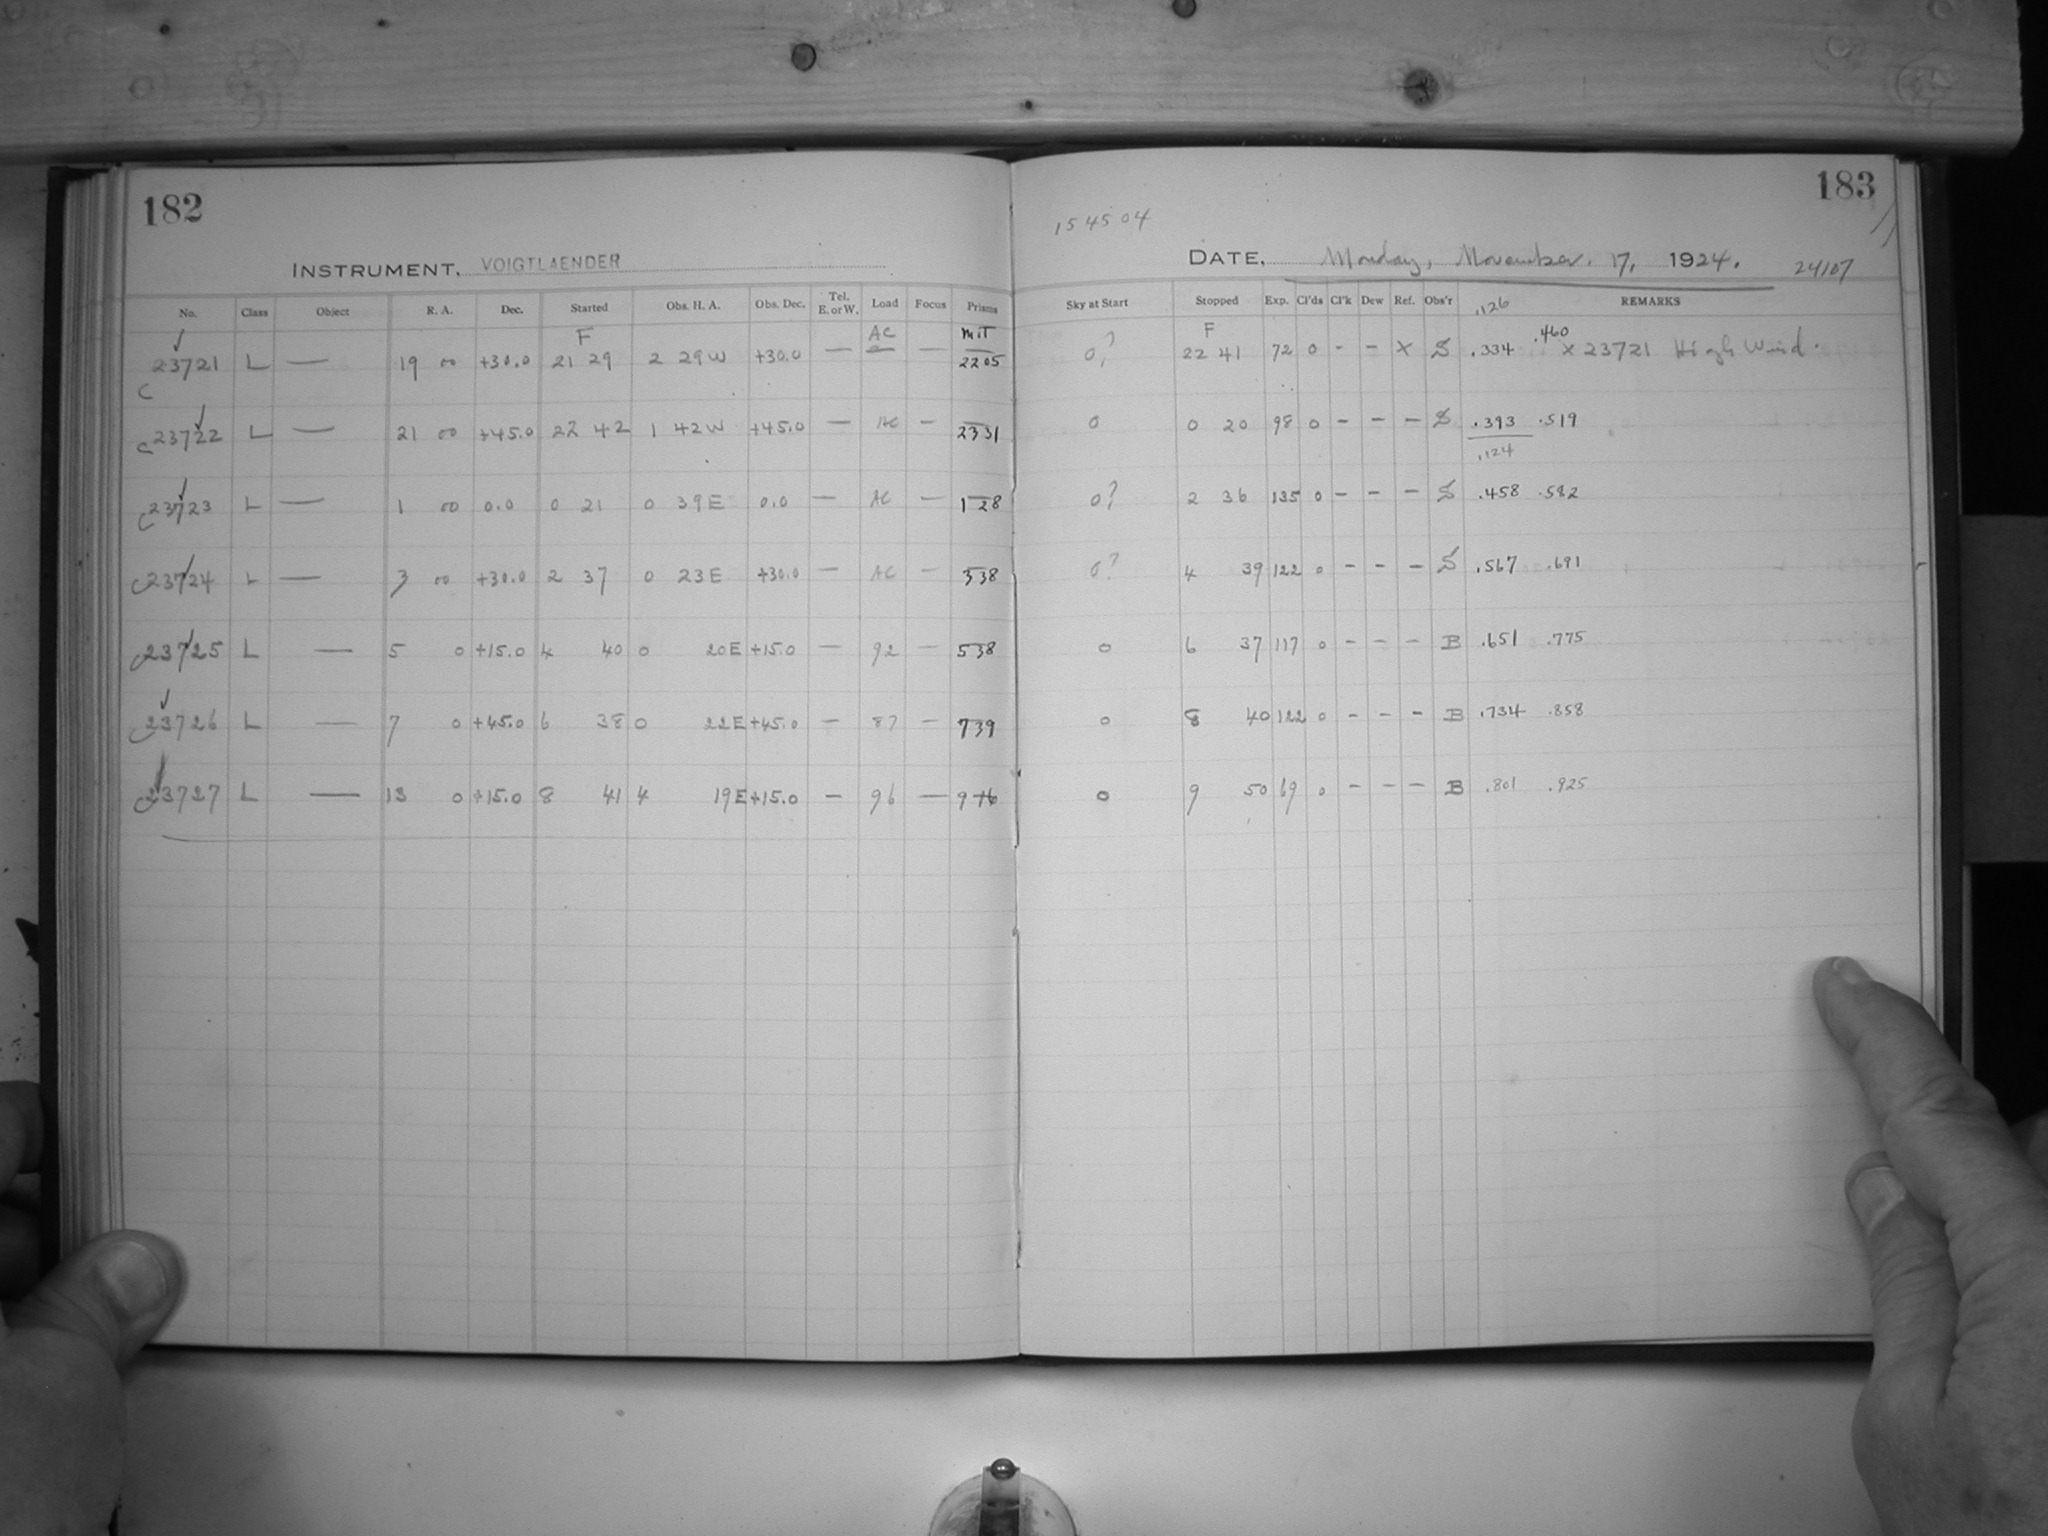 182
INSTRUMENT, VOIGTLAENDER
No. Class Object R. A. Dec. Started Obs. H. A. Obs. Dec. Tel. E. or W. Load Focus Prisms
F AC MIT
23721 L — 19 00 +30.0 21 29 2 29 W +30.0 — — 2205
C
C 23722 L — 21 00 +45.0 22 42 1 42 W +45.0 — AC — 2331
C 23723 L — 1 00 0.0 0 21 0 39 E 0.0 — AC — 128
C 23724 L — 3 00 +30.0 2 37 0 23 E +30.0 — AC — 338
C 23725 L — 5 0 +15.0 4 40 0 20 E +15.0 — 92 — 538
C 23726 L — 7 0 +45.0 6 38 0 22 E +45.0 — 87 — 739
C 23727 L — 13 0 +15.0 8 41 4 19 E +15.0 — 96 — 916
183
154504
DATE, Monday, November 17, 1924. 24107
Sky at Start Stopped Exp. Cl'ds Cl'k Dew Ref. Obs'r REMARKS
.126
F
0? 22 41 72 0 - - X S .334 .460 X 23721 High Wind.
0 0 20 98 0 - - - S .393 .519
.124
0? 2 36 135 0 - - - S .458 .582
0? 4 39 122 0 - - - S .567 .691
0 6 37 117 0 - - - B .651 .775
0 8 40 122 0 - - - B .734 .858
0 9 50 69 0 - - - B .801 .925